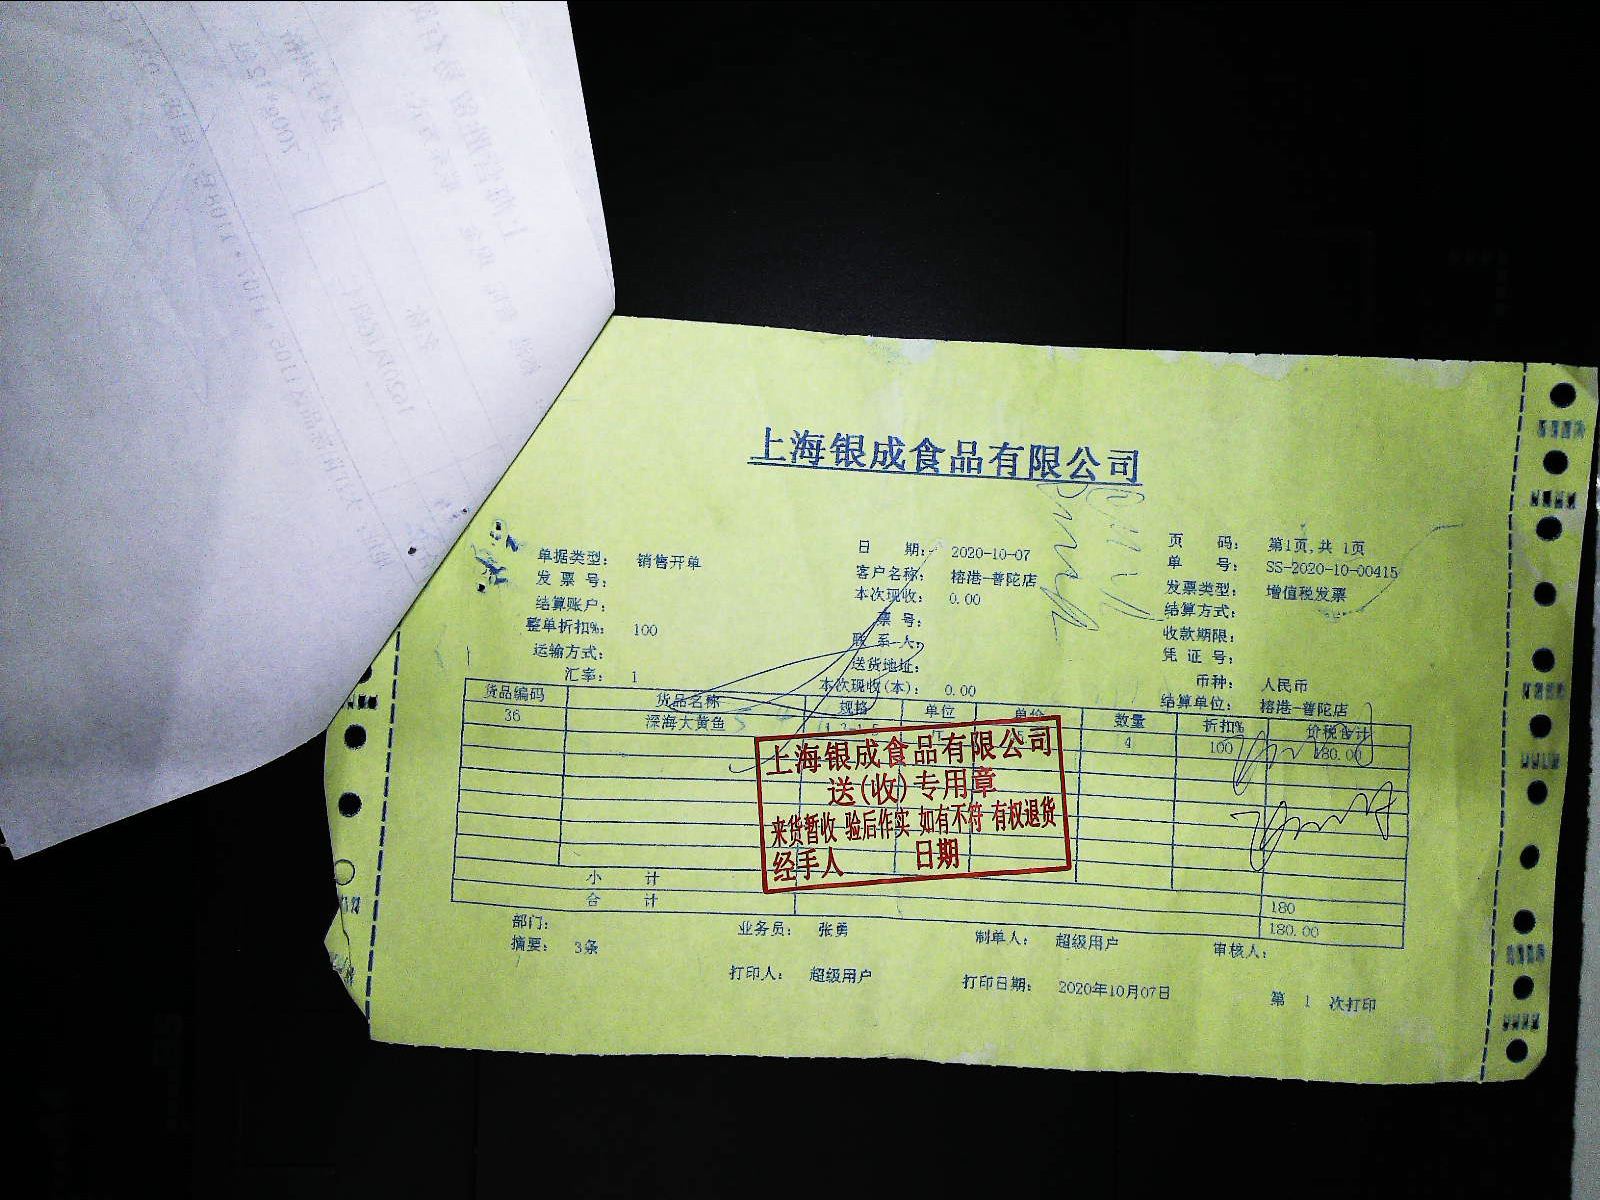 上海银成食品有限公司
单据类型： 销售开单 日 期： 2020-10-07 页 码： 第1页,共 1页
发 票 号： 客户名称： 榕港-普陀店 单 号： SS-2020-10-00415
结算账户： 本次现收： 0.00 发票类型： 增值税发票
整单折扣%： 100 票 号： 结算方式：
运输方式： 联 系 人： 收款期限：
汇率： 1 送货地址： 凭 证 号：
本次现收(本)： 0.00 币种： 人民币
结算单位： 榕港-普陀店
货品编码 货品名称 规格 单位 单价 数量 折扣% 价税合计
36 深海大黄鱼 4 100 180.00
上海银成食品有限公司
送(收)专用章
来货暂收 验后作实 如有不符 有权退货
经手人 日期
小 计 180
合 计 180.00
部门： 业务员： 张勇 制单人： 超级用户 审核人：
摘要： 3条
打印人： 超级用户 打印日期： 2020年10月07日 第 1 次打印